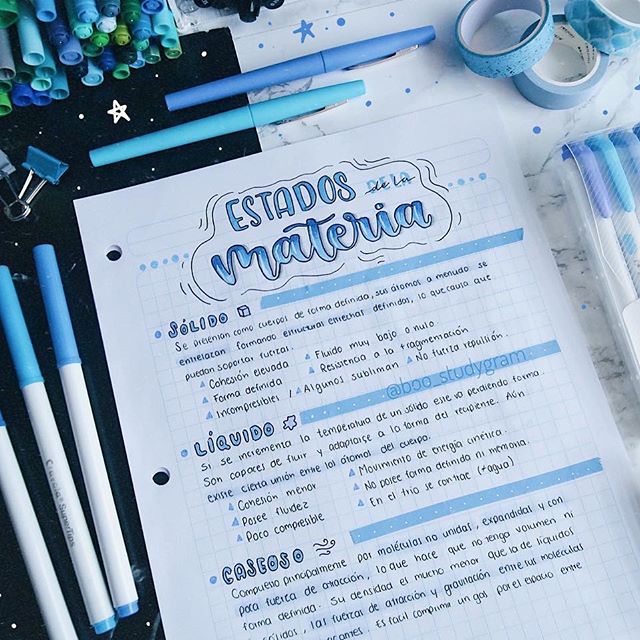 ESTADOS de la
materia
SÓLIDO
Se presentan como cuerpos de forma definida, sus átomos a menudo se
entrelazan formando estructuras estrechas definidas, lo que causa que
puedan soportar fuerzas.
Cohesión elevada
Forma definida
Incompresibles / Algunos subliman
Fluido muy bajo o nulo.
Resistencia a la fragmentación
No fuerza repulsión.
@boo_studygram
LÍQUIDO
Si se incrementa la temperatura de un sólido este va perdiendo forma.
Son capaces de fluir y adaptarse a la forma del recipiente. Aún
existe cierta unión entre los átomos del cuerpo.
Cohesión menor
Posee fluidez
Poco compresible
Movimiento de energía cinética.
No posee forma definida ni memoria.
En el frío se contrae (+agua)
GASEOSO
Compuesto principalmente por moléculas no unidas, expandidas y con
poca fuerza de atracción, lo que hace que no tenga volumen ni
forma definida. Su densidad es mucho menor que la de líquidos
y sólidos, las fuerzas de atracción y gravitación entre sus moléculas
Es fácil comprimir un gas por el espacio entre